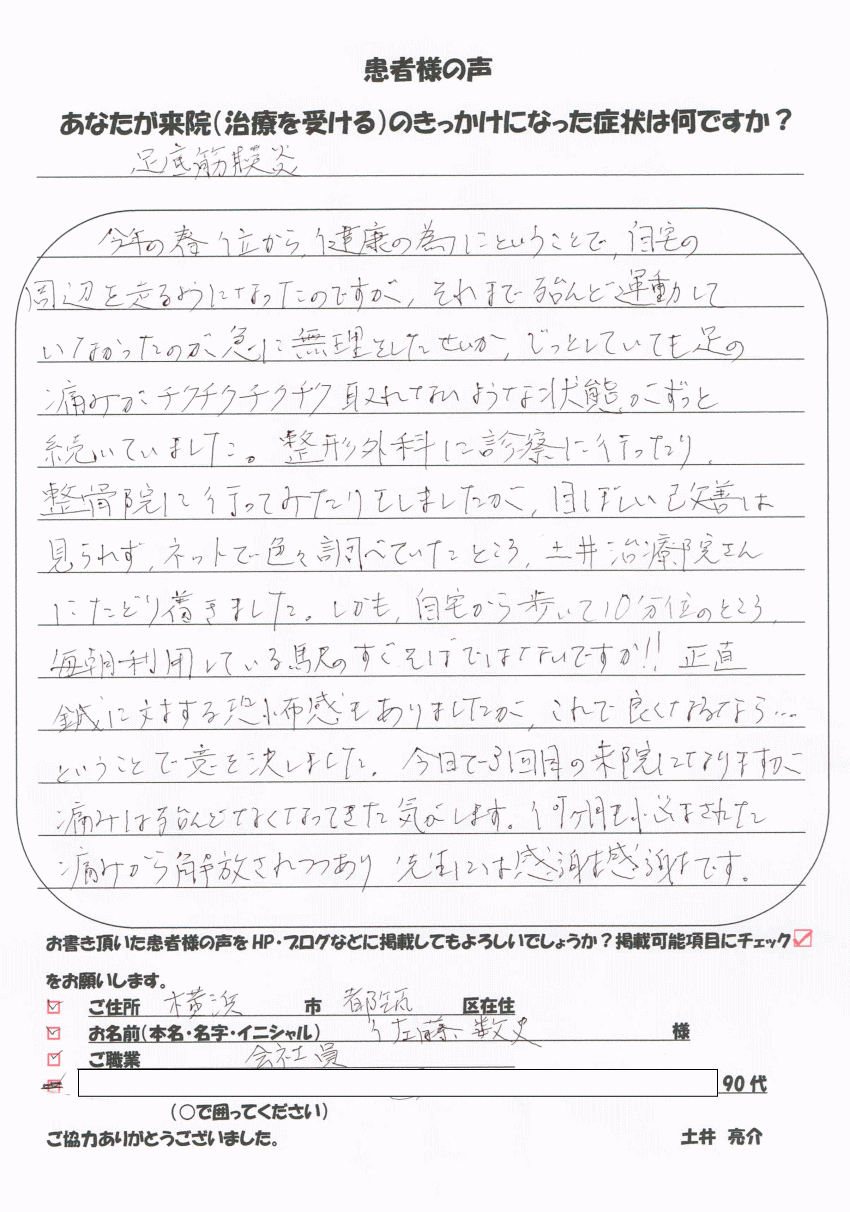 患者様の声
あなたが来院(治療を受ける)のきっかけになった症状は何ですか?
足底筋膜炎
今年の春位から、健康の為にということで、自宅の
周辺を走るようになったのですが、それまで殆んど運動して
いなかったのが急に無理をしたせいか、じっとしていても足の
痛みがチクチクチクチク取れないような状態がずっと
続いていました。整形外科に診察に行ったり、
整骨院に行ってみたりもしましたが、目ぼしい改善は
見られず、ネットで色々調べていたところ、土井治療院さん
にたどり着きました。しかも、自宅から歩いて10分位のところ、
毎朝利用している駅のすぐそばではないですか!! 正直
鍼に対する恐怖感もありましたが、これで良くなるなら…
ということで意を決しました。今日で3回目の来院になりますが
痛みは殆んどなくなってきた気がします。何ヶ月も悩まされた
痛みから解放されつつあり 先生には感謝感謝です。
お書き頂いた患者様の声をHP・ブログなどに掲載してもよろしいでしょうか?掲載可能項目にチェック☑
をお願いします。
☑ ご住所 横浜 市 都筑 区在住
☑ お名前(本名・名字・イニシャル) 佐藤 数史 様
☑ ご職業 会社員
90代
(○で囲ってください)
ご協力ありがとうございました。 土井 亮介